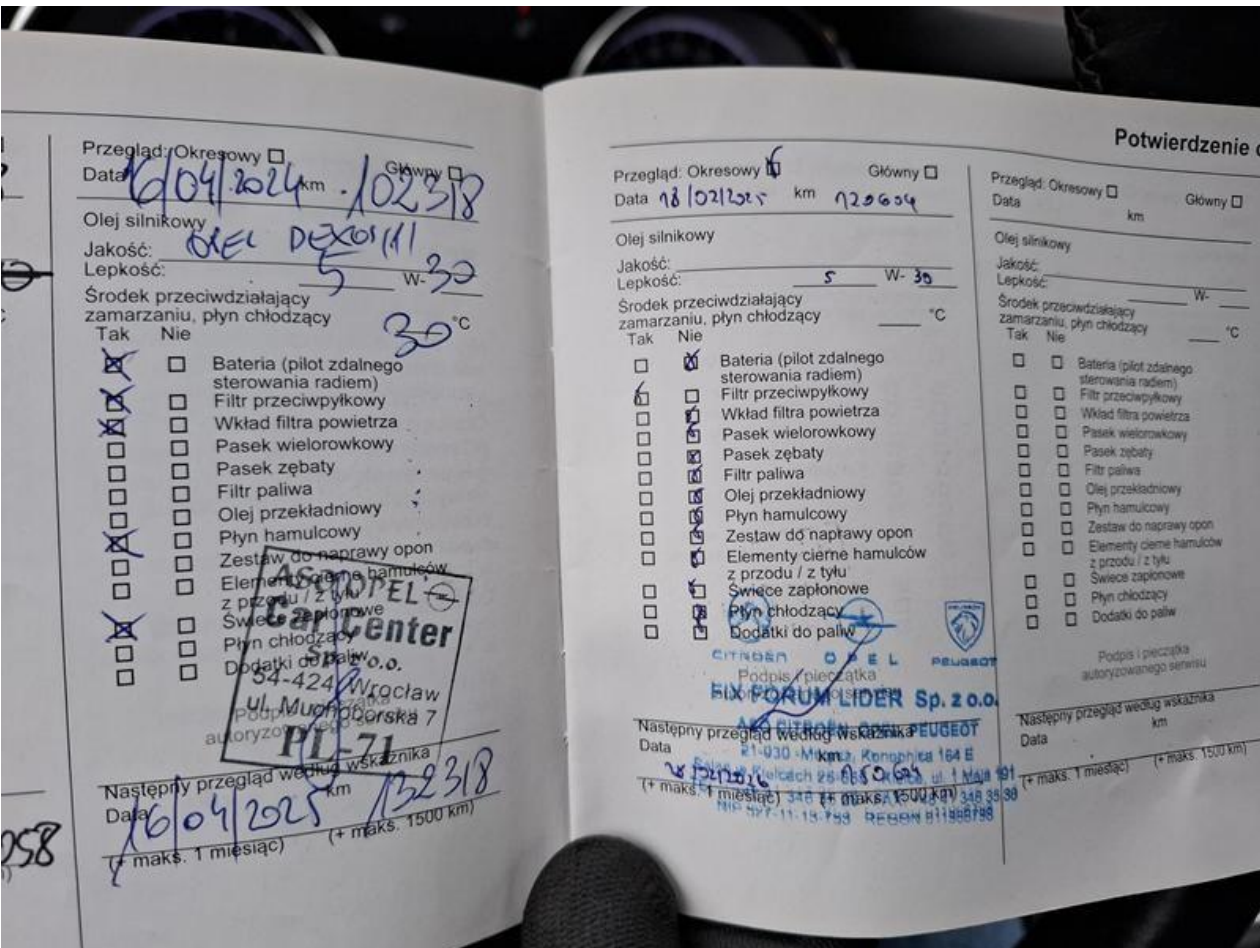 Potwierdzenie
Przegląd: Okresowy Główny
Data 16/04/2024 km 102318
Olej silnikowy
Jakość: OPEL DEXOS
Lepkość: 5 W- 30
Środek przeciwdziałający
zamarzaniu, płyn chłodzący 30 °C
Tak Nie
Bateria (pilot zdalnego
sterowania radiem)
Filtr przeciwpyłkowy
Wkład filtra powietrza
Pasek wielorowkowy
Pasek zębaty
Filtr paliwa
Olej przekładniowy
Płyn hamulcowy
Zestaw do naprawy opon
Elementy cierne hamulców
z przodu / z tyłu
Świece zapłonowe
Płyn chłodzący
Dodatki do paliw
OPEL
Car Center
Sp. z o.o.
54-424 Wrocław
ul. Muchoborska 7
PL-71
Następny przegląd według wskaźnika
Data 16/04/2025 km 132318
(+ maks. 1 miesiąc) (+ maks. 1500 km)
058
Przegląd: Okresowy Główny
Data 18/02/2025 km 120604
Olej silnikowy
Jakość:
Lepkość: 5 W- 30
Środek przeciwdziałający
zamarzaniu, płyn chłodzący °C
Tak Nie
Bateria (pilot zdalnego
sterowania radiem)
Filtr przeciwpyłkowy
Wkład filtra powietrza
Pasek wielorowkowy
Pasek zębaty
Filtr paliwa
Olej przekładniowy
Płyn hamulcowy
Zestaw do naprawy opon
Elementy cierne hamulców
z przodu / z tyłu
Świece zapłonowe
Płyn chłodzący
Dodatki do paliw
CITROËN OPEL PEUGEOT
Podpis i pieczątka
FIX FORUM LIDER Sp. z o.o.
ASO CITROËN OPEL PEUGEOT
Następny przegląd według wskaźnika
Data km
(+ maks. 1 miesiąc) (+ maks. 1500 km)
Przegląd: Okresowy Główny
Data km
Olej silnikowy
Jakość:
Lepkość: W-
Środek przeciwdziałający
zamarzaniu, płyn chłodzący °C
Tak Nie
Bateria (pilot zdalnego
sterowania radiem)
Filtr przeciwpyłkowy
Wkład filtra powietrza
Pasek wielorowkowy
Pasek zębaty
Filtr paliwa
Olej przekładniowy
Płyn hamulcowy
Zestaw do naprawy opon
Elementy cierne hamulców
z przodu / z tyłu
Świece zapłonowe
Płyn chłodzący
Dodatki do paliw
Podpis i pieczątka
autoryzowanego serwisu
Następny przegląd według wskaźnika
Data km
(+ maks. 1 miesiąc) (+ maks. 1500 km)